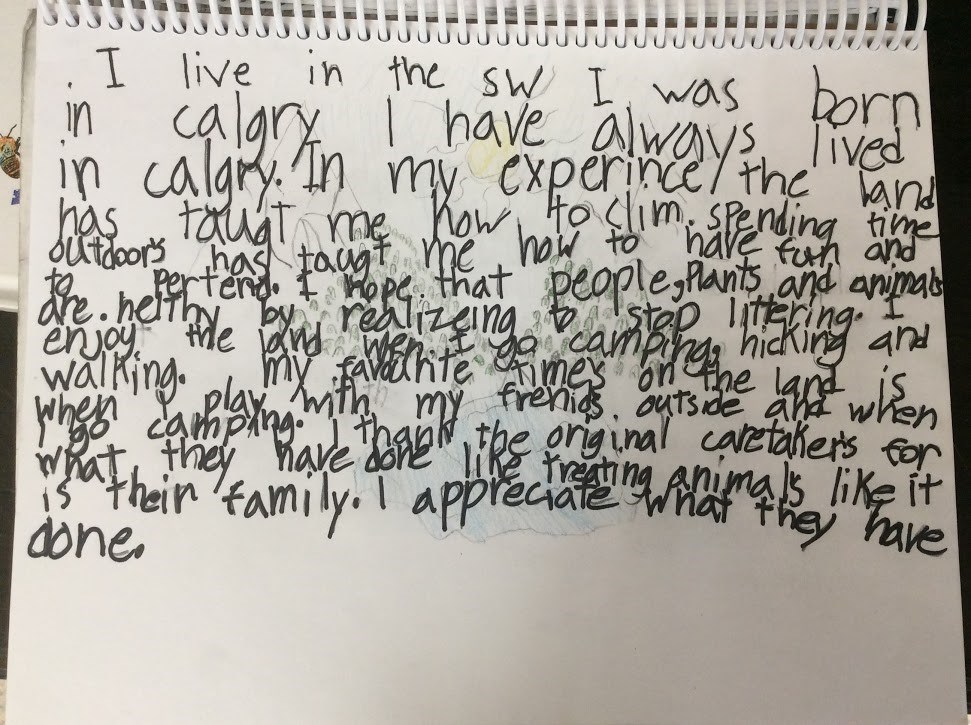 . I live in the SW I was born
in calgry I have always lived
in calgry. In my experince, the land
has taugt me how to clim. spending time
outdoors has taugt me how to have fun and
to pertend. I hope that people, plants and animals
are. helthy by realizeing to stop littering. I
enjoy the land wen I go camping, hicking and
walking. my favourite times on the land is
when I play with my frenids outside and when
I go camping. I thank the original caretakers for
what they have done like treating animals like it
is their family. I appreciate what they have
done.